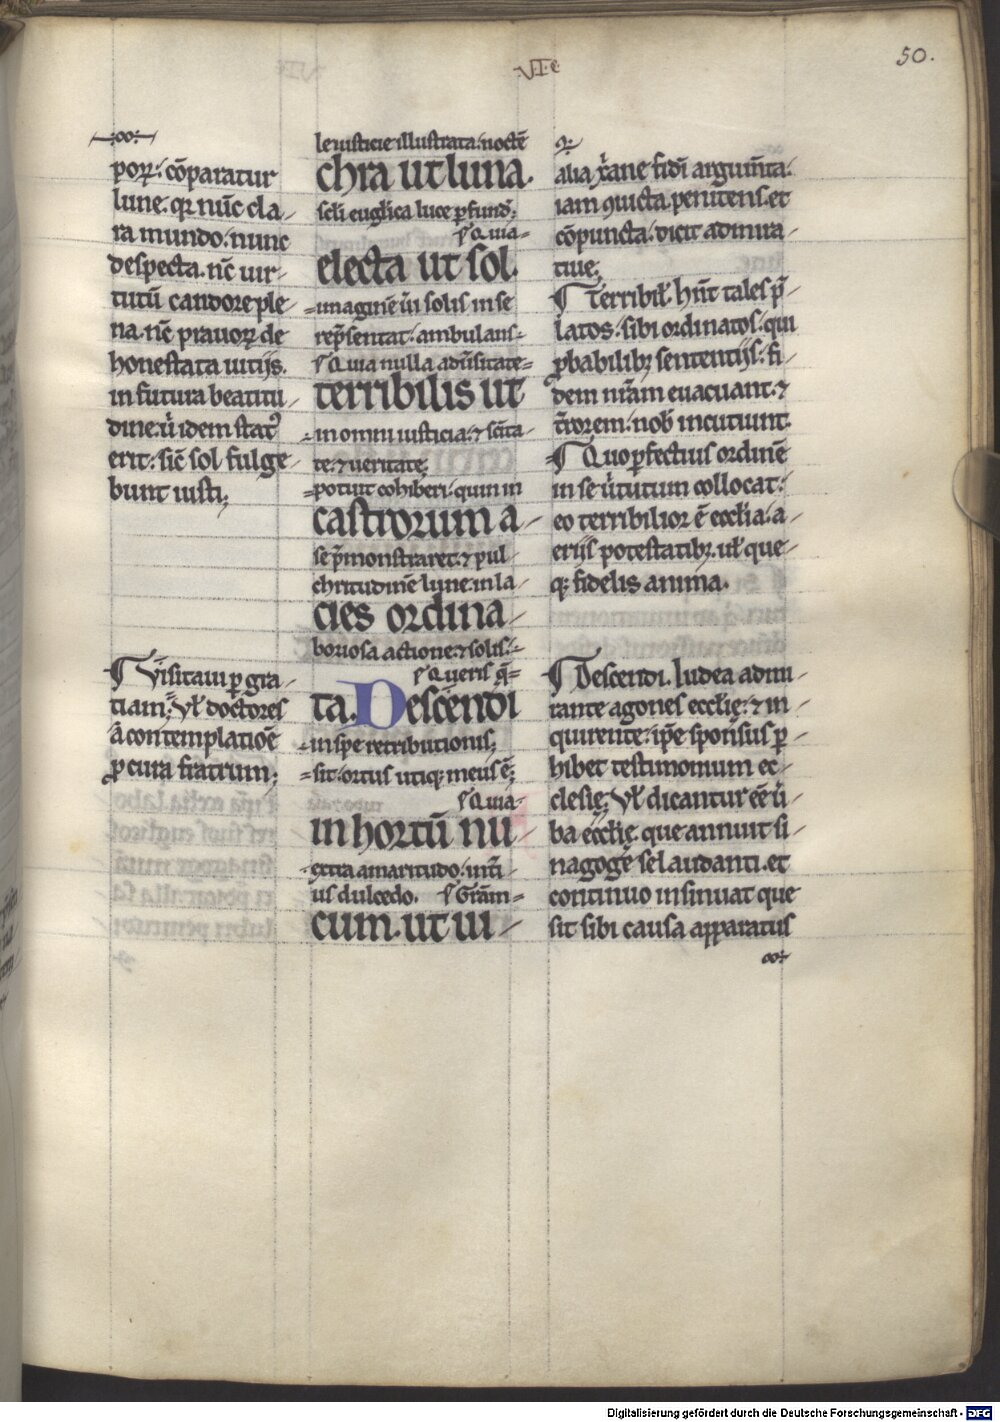 50.
.VI.c
porꝝ: cōparatur
lune. qꝛ nūc cla-
ra mundo: nunc
despecta. nc̄ uir-
tutū candore ple-
na. nc̄ prauorꝝ de
honestata uitijs.
in futura beatitu-
dine: ū idem stat᷒
erit: sic̄ sol fulge-
bunt iusti;
¶ Visitaui ꝑ gra-
tiam; Vl̄ doctores
ā contemplatiōe
ꝓ cura fratrum;
le iusticie illustrata: noctē
chra ut luna.
scl̄i euglica luce ꝑfund̄;
¶ Quia=
electa ut sol.
=imaginē ūi solis in se
rep̄sentat: ambulans:
¶ Quia nulla adūsitate=
terribilis ut
=in omni iusticia: ⁊ sc̄ita-
te: ⁊ ueritate;
=potuit cohiberi: quin in
castrorum a-
se p̄monstraret: ⁊ pul-
chritudinē lune: in la-
cies ordina-
boriosa actione: ⁊ solis:
¶ Queris q̄=
ta. Descendi
=in spe retributionis;
=sit: ortus utiqꝫ meus ē;
¶ Quia=
in hortū nu-
us dulcedo. ¶ Grām=
cum. ut ui-
alia xp̄ane fidi argum̄ta:
iam ꝯuicta. penitens. et
cōpuncta: dicit admira-
tiue;
¶ Terribil̄. hn̄t tales p̄-
latos: sibi ordinatos: qui
ꝓbabilibꝫ sententijs: fi-
dem nr̄am euacuant: ⁊
t̄rorem: nob̄ incutiunt.
¶ Quo ꝑfectius ordinē
in se ūtutum collocat:
eo terribilior ē eccl̄ia: a-
eriis potestatibꝫ. ul̄ que-
qꝫ fidelis anima.
¶ Descendi. Iudea admi-
rante agones eccl̄ie: ⁊ in-
quirente: ip̄e sponsus ꝑ-
hibet testimonium ec-
clesie; Vl̄ dicantur ēē ū-
ba eccl̄ie. que annuit si-
nagoge se laudanti. et
continuo insinuat que
sit sibi causa apparatus
Digitalisierung gefördert durch die Deutsche Forschungsgemeinschaft - DFG